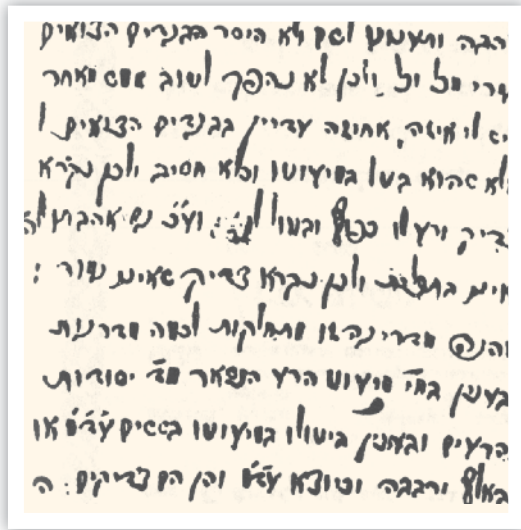 הבה ותענוג לשם ולא הוסר הבגדים הצואים
מרי מכל וכל ולכן לא נהפך לטוב ממש מאחר
יש לו איזה אחיזה עדיין בבגדים הצואים
לא שהוא בטל במיעוטו וכלא חשיב ולכן נקרא
צדיק ורע לו כפוף ובטל לו: וע"כ גם אהבתו
אינה בתכלית ולכן נקרא צדיק שאינו גמור :
והנה מדרי' זו מתחלקות לכמה מדרגות
בענין בחי' מיעוט הרע הנשאר מד' יסודות
הרעים ובענין ביטולו במיעוטו בששים עד"מ או
באלף ורבבה וכיוצא עד"מ והן הם צדיקים: